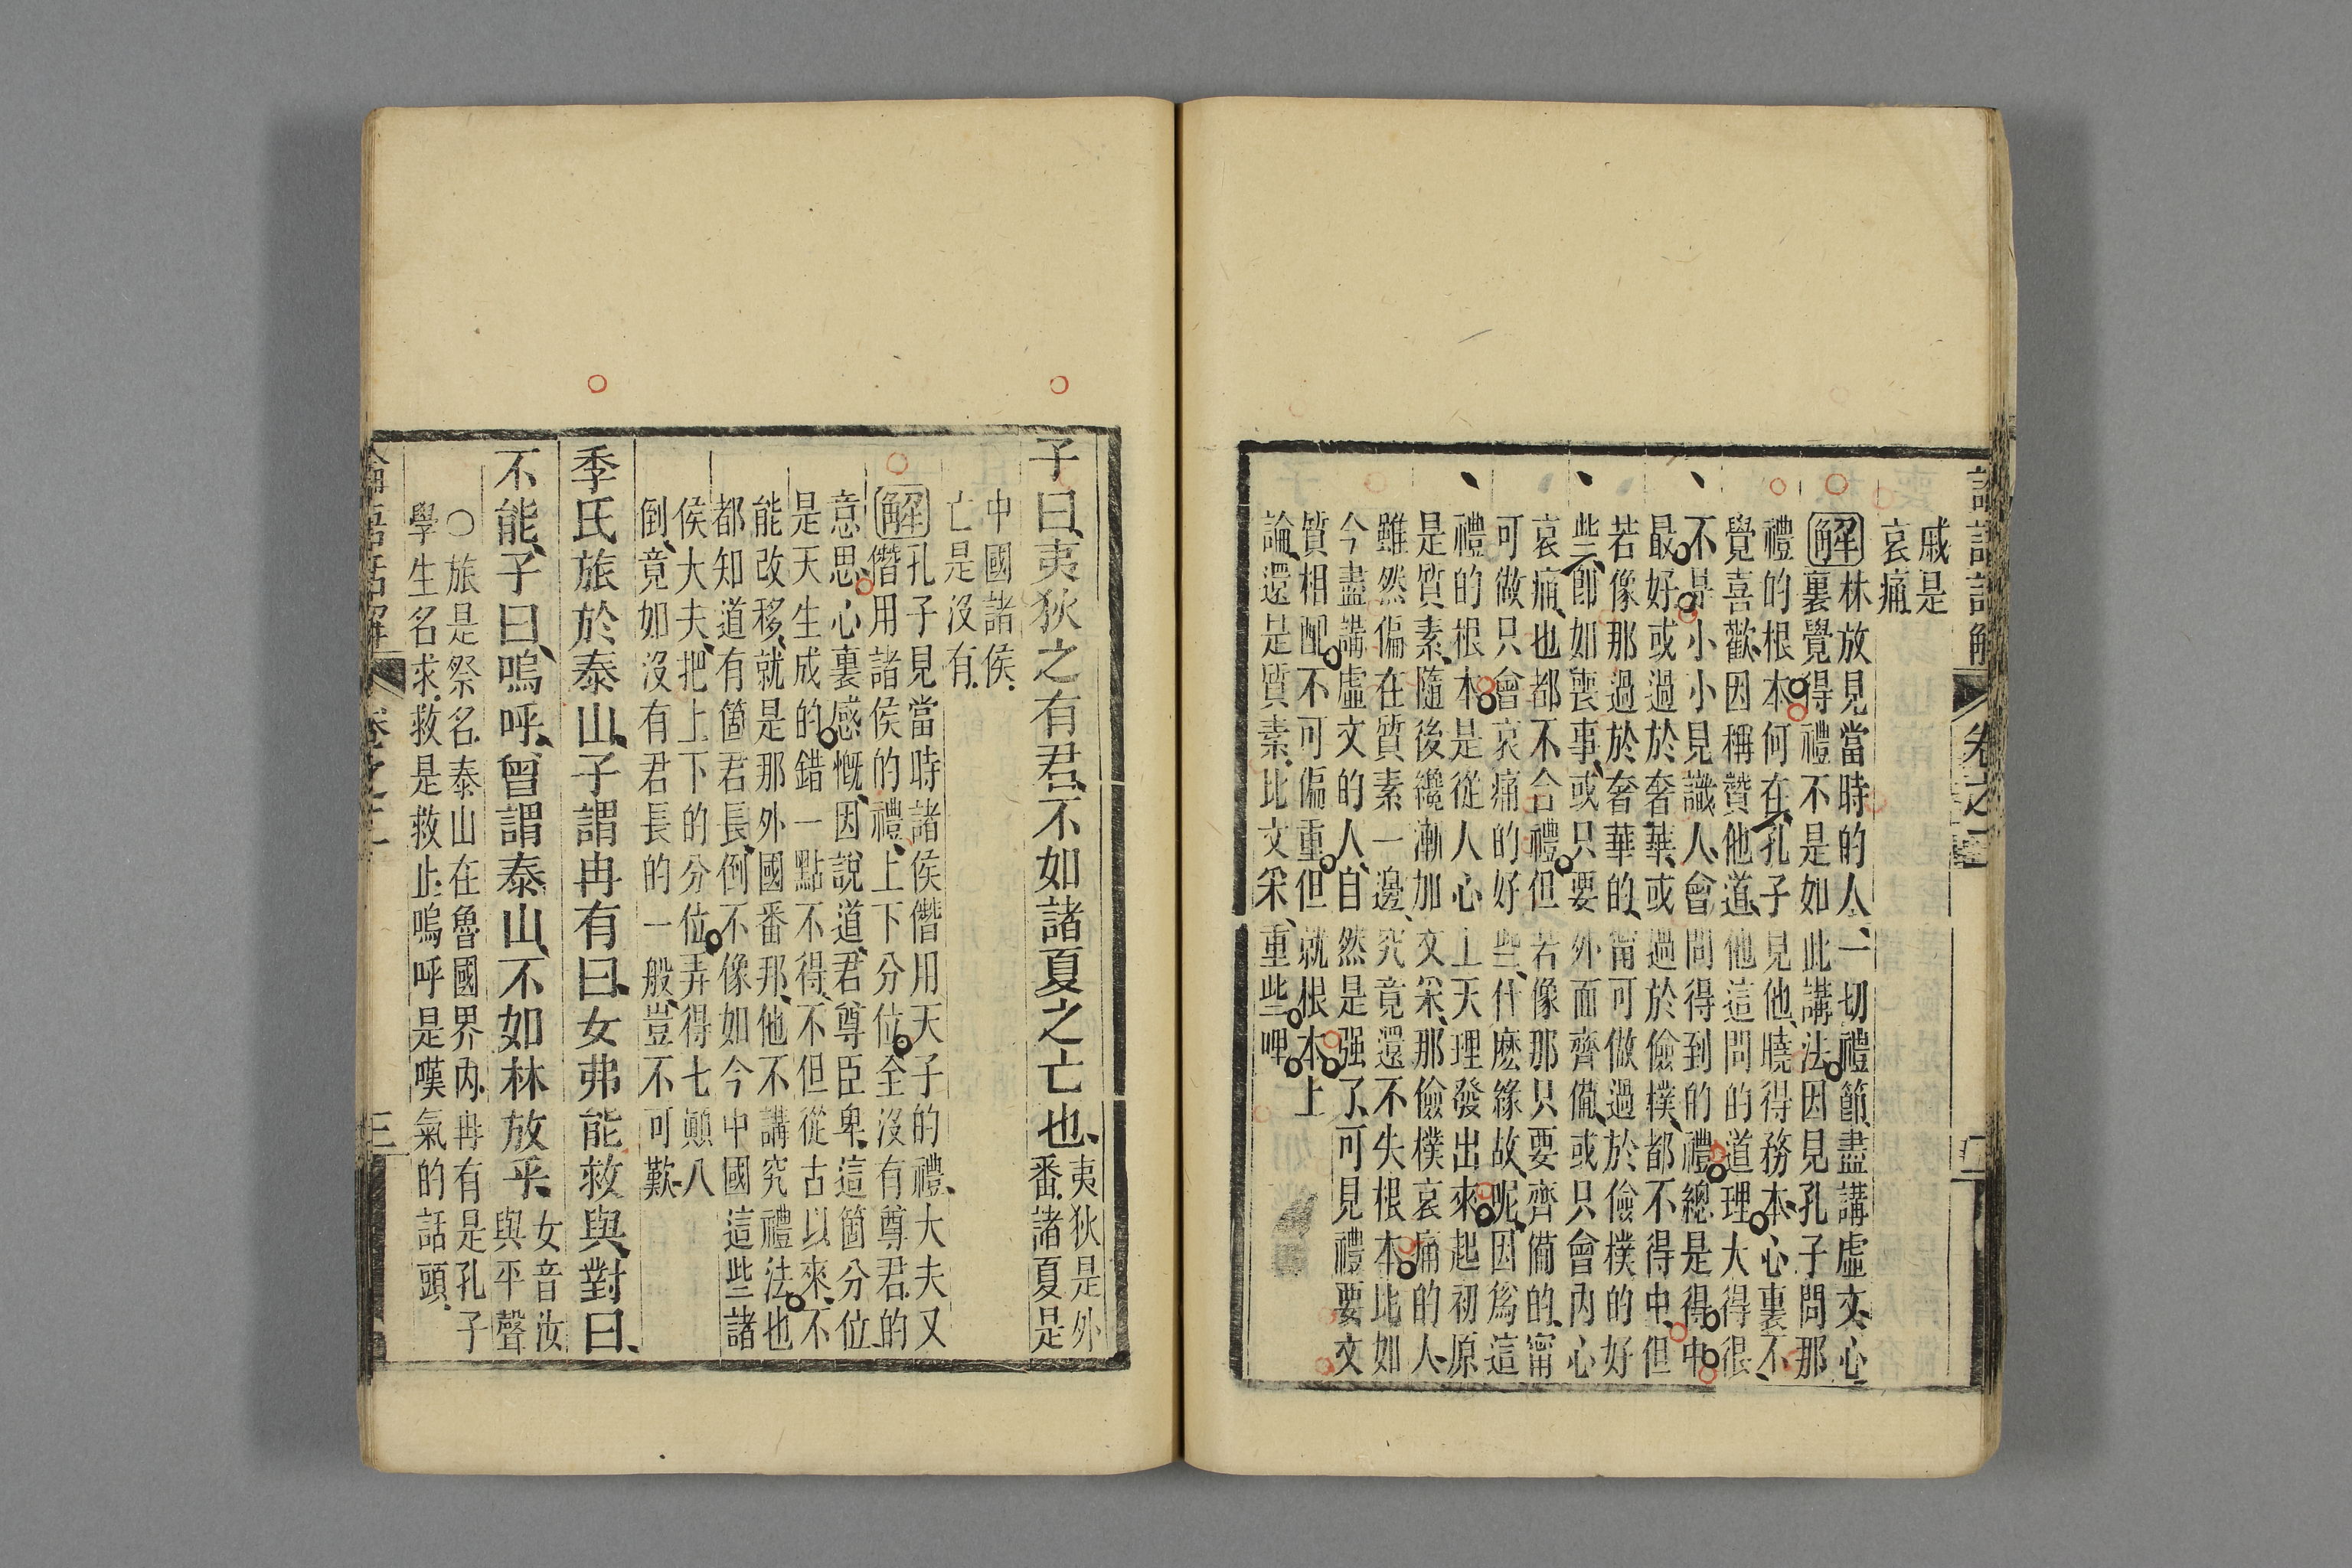 戚是
哀痛
解林放見當時的人、一切禮節、盡講虛文、心
裏覺得禮不是如此講法、因見孔子問那
禮的根本何在、孔子見他、曉得務本、心裏不
覺喜歡、因稱贊他道、他這問的道理大得很、
不是小小見識人、會問得到的、禮總是得中
最好、或過於奢華、或過於儉樸、都不得中、但
若像那過於奢華的、甯可做過於儉樸的好
些、卽如喪事、或只要外面齊備、或只會內心
哀痛、也都不合禮、但若像那只要齊備的、甯
可做只會哀痛的好些、什麽緣故呢、因爲這
禮的根本、是從人心上天理發出來、起初原
是質素、隨後纔漸加文采、那儉樸哀痛的人、
雖然偏在質素一邊、究竟還不失根本、比如
今盡講虛文的人、自然是强了、可見禮要文
質相配、不可偏重、但就根本上
論、還是質素、比文采、重些呷
子曰、夷狄之有君、不如諸夏之亡也、夷狄是外
番、諸夏是
中國諸侯、
亡是沒有、
解孔子見當時諸侯僭用天子的禮、大夫又
僭用諸侯的禮、上下分位、全沒有尊君的
意思、心裏感慨、因說道、君尊臣卑、這箇分位
是天生成的、錯一點不得、不但從古以來、不
能改移、就是那外國番邦、他不講究禮法、也
都知道有箇君長、倒不像如今中國這些諸
侯大夫、把上下的分位、弄得七顚八
倒、竟如沒有君長的一般、豈不可歎、
季氏旅於泰山、子謂冉有曰、女弗能救與、對曰、
不能、子曰、嗚呼、曾謂泰山、不如林放乎、女音汝
與平聲
○旅是祭名、泰山在魯國界內、冉有是孔子
學生名求、救是救止、嗚呼是嘆氣的話頭、
論語話解
卷之二
三